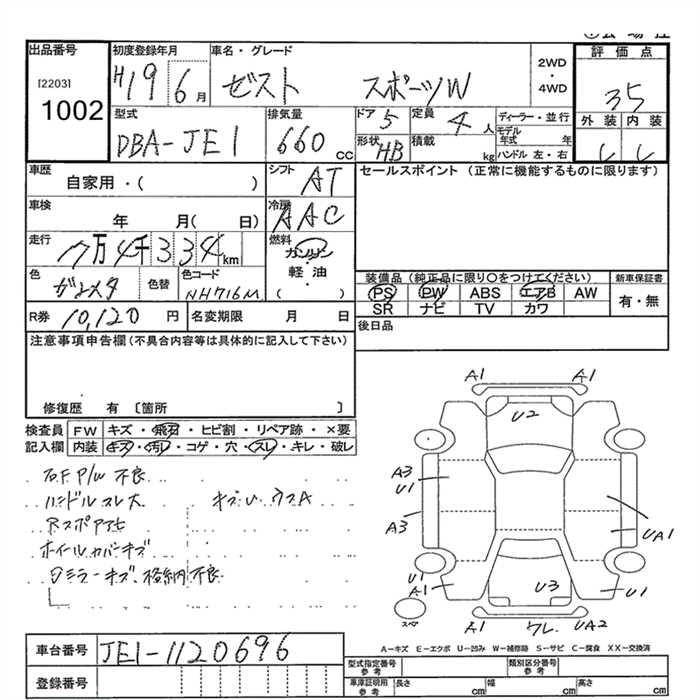 出品番号
[2203]
1002
初度登録年月
H19 6月
車名・グレード
ゼスト スポーツW
2WD
・
4WD
評価点
35
外装 内装
型式
DBA-JE1
排気量
660 CC
ドア 5
定員 4人
形状 HB
積載 kg
ディーラー・並行
モデル年式 年
ハンドル 左・右
車歴
自家用・( )
シフト AT
セールスポイント (正常に機能するものに限ります)
車検
年 月( 日)
冷房 AAC
走行
7万4千334km
燃料
ガソリン
・
軽油
・
( )
色
ガンメタ
色替
色コード
NH716M
装備品 (純正品に限り〇をつけてください)
PS PW ABS エアB AW
SR ナビ TV カワ
新車保証書
有・無
R券 10,120円
名変期限 月 日
後日品
注意事項申告欄 (不具合内容等は具体的に記入して下さい)
修復歴 有 〔箇所 〕
検査員
記入欄
FW キズ・飛石・ヒビ割・リペア跡・×要
内装 キズ・汚レ・コゲ・穴・スレ・キレ・破レ
右F P/W 不良
ハンドルスレ大 キズU ウスA
ホイールカバーキズ
ミラーキズ、格納不良
A1 A1
U2
A3
U1
A3
UA1
U1
A1
U3
U1
スペ
A1
ワレ
UA2
A-キズ E-エクボ U-凹み W-補修跡 S-サビ C-腐食 XX-交換済
車台番号 JE1-1120696
登録番号
型式指定番号
参考
類別区分番号
参考
車庫証明用
参考
長さ cm 幅 cm 高さ cm